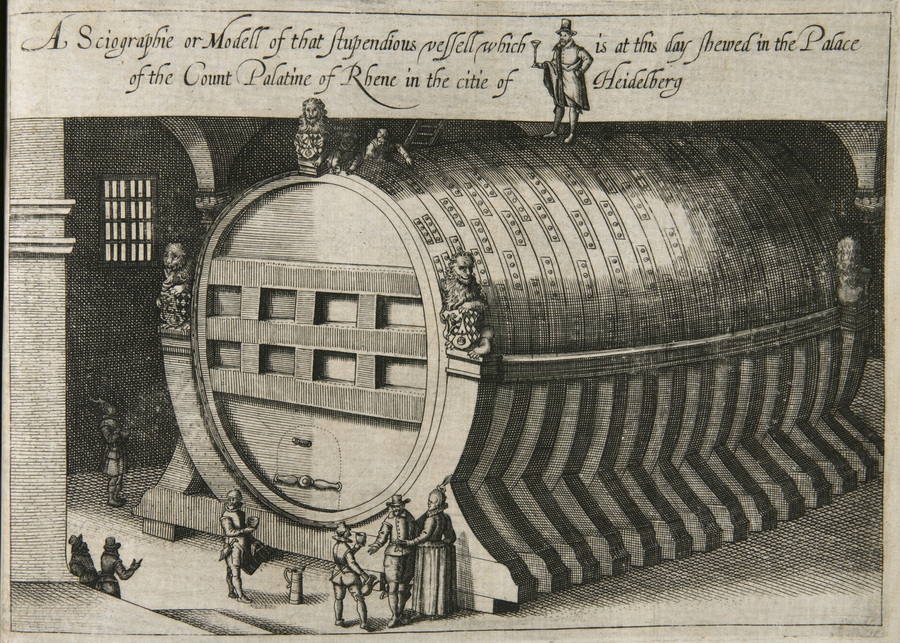 A Sciographie or Modell of that stupendious vessell which is at this day shewed in the Palace
of the Count Palatine of Rhene in the citie of Heidelberg